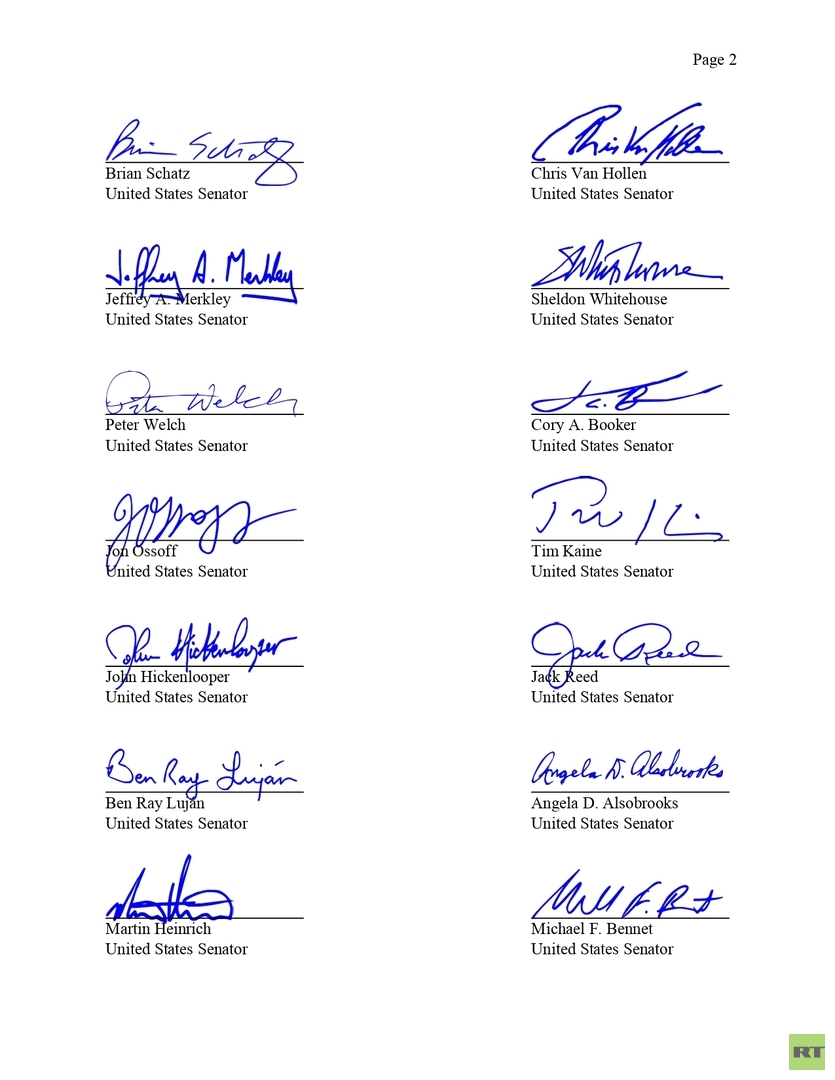 Page 2
Brian Schatz
Brian Schatz
United States Senator
Chris Van Hollen
Chris Van Hollen
United States Senator
Jeffrey A. Merkley
Jeffrey A. Merkley
United States Senator
SWhitehouse
Sheldon Whitehouse
United States Senator
Peter Welch
Peter Welch
United States Senator
Cory A. Booker
United States Senator
Jon Ossoff
United States Senator
Tim Kaine
United States Senator
John Hickenlooper
John Hickenlooper
United States Senator
Jack Reed
Jack Reed
United States Senator
Ben Ray Luján
Ben Ray Luján
United States Senator
Angela D. Alsobrooks
Angela D. Alsobrooks
United States Senator
Martin Heinrich
United States Senator
Michael F. Bennet
United States Senator
RT